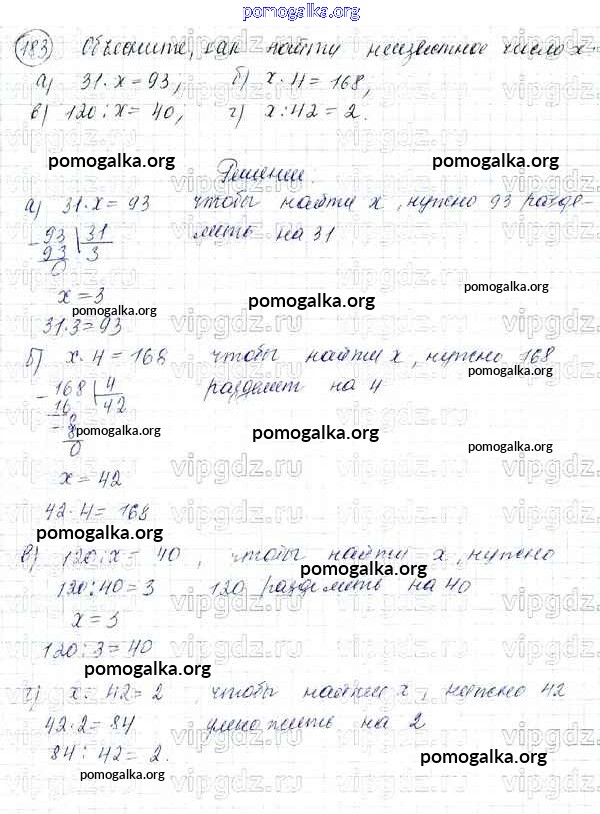 pomogalka.org
183 Объясните, как найти неизвестное число x
а) 31·x=93; б) x·4=168,
в) 120:x=40; г) x:42=2.
pomogalka.org pomogalka.org pomogalka.org
Решение.
а) 31·x=93 чтобы найти x, нужно 93 разде-
93 31 лить на 31
93 3
0
x=3
pomogalka.org pomogalka.org pomogalka.org
31·3=93
б) x·4=168 чтобы найти x, нужно 168
pomogalka.org
168 4 разделит на 4
16 42
8
pomogalka.org pomogalka.org
8
pomogalka.org
0
x=42
42·4=168
pomogalka.org
в) 120:x=40, чтобы найти x, нужно
pomogalka.org
120:40=3 120 разделить на 40
x=3
120:3=40
pomogalka.org pomogalka.org
г) x:42=2, чтобы найти x, нужно 42
42·2=84 умножить на 2
84:42=2.
pomogalka.org pomogalka.org
vipgdz.ru